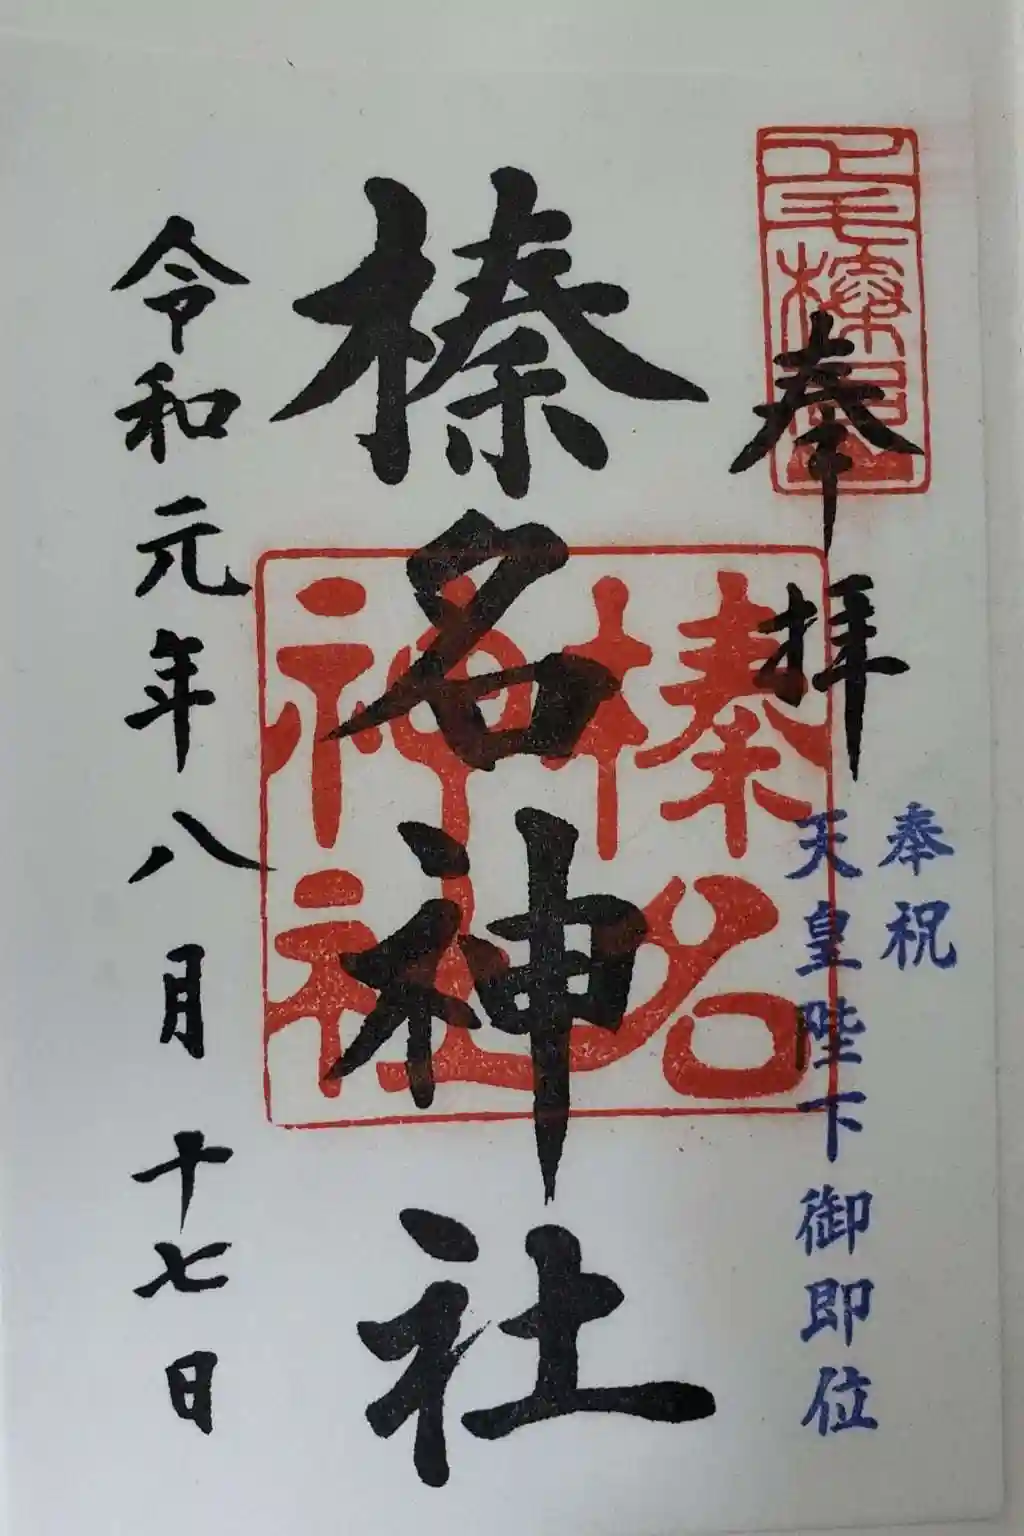 上毛榛名山
奉拝
奉祝
天皇陛下御即位
榛名神社
榛名
神社
令和元年八月十七日